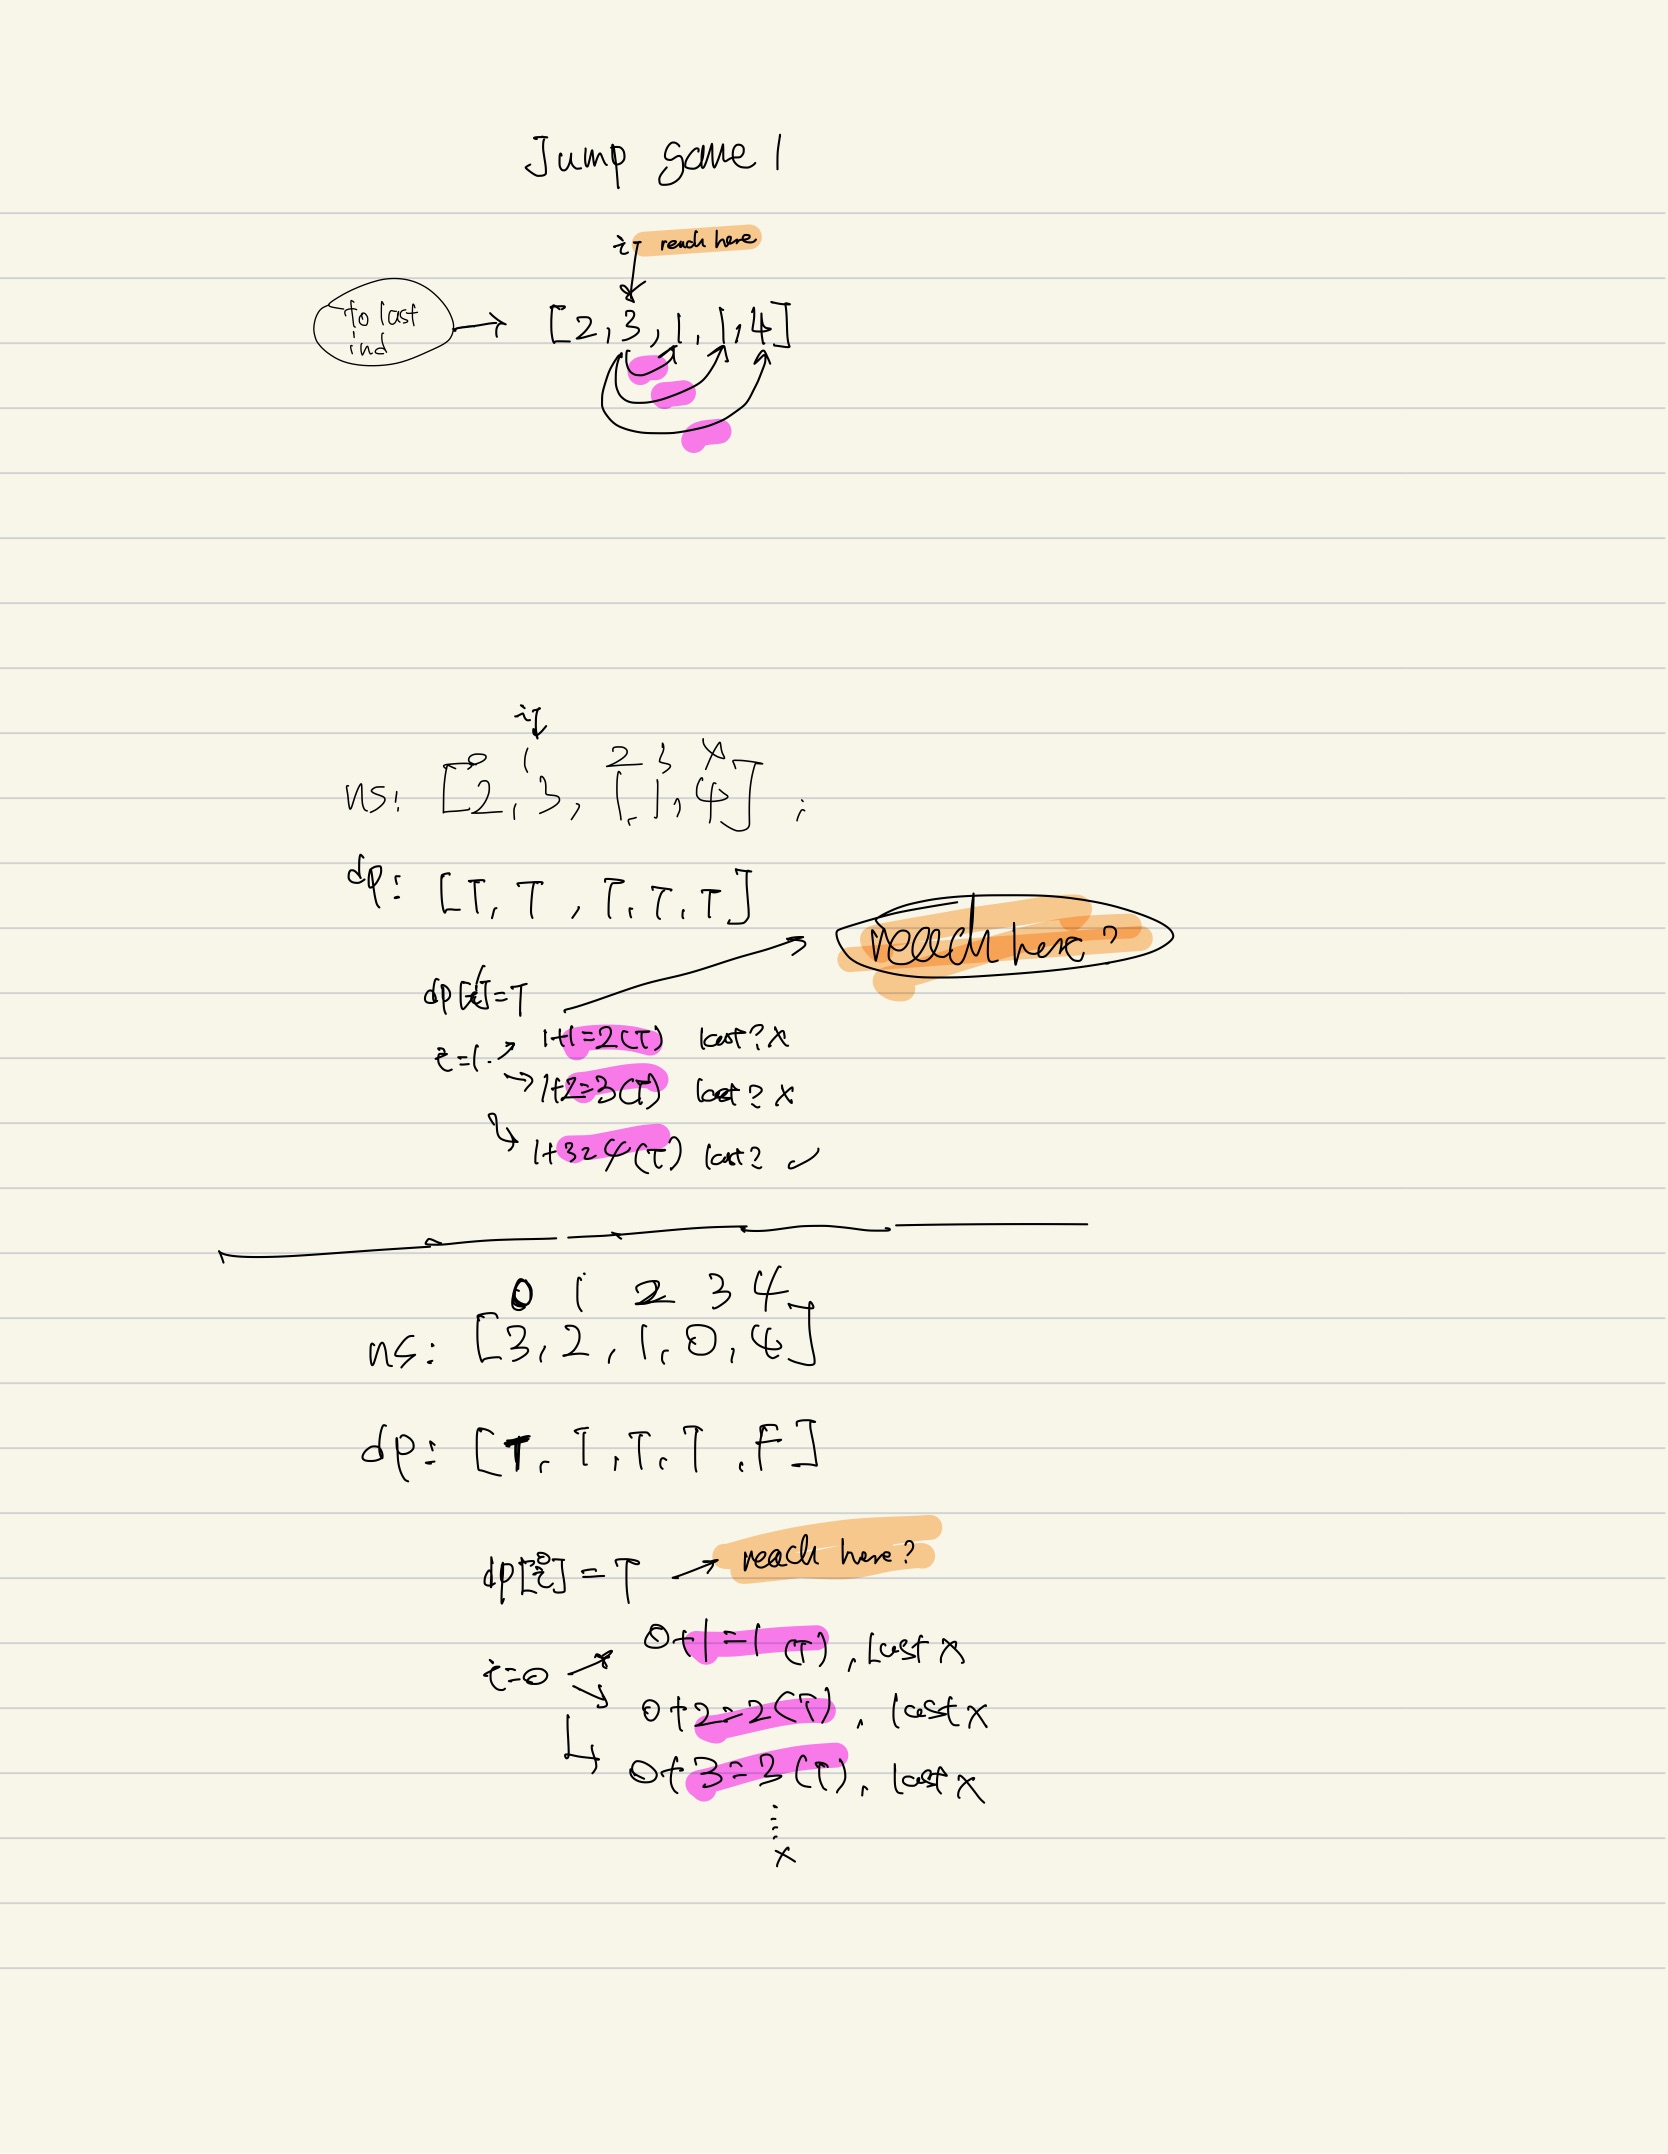 Jump game 1
i reach here
to last
ind
[2,3,1,1,4]
i
0 1 2 3 4
ns: [2,3,1,1,4] ;
dp: [T,T,T,T,T]
reach here?
dp[i]=T
1+1=2(T) last? x
i=1.
1+2=3(T) last? x
1+3=4(T) last? ✓
0 1 2 3 4
ns: [3,2,1,0,4]
dp: [T,T,T,T,F]
dp[i]=T → reach here?
0+1=1(T), last x
i=0
0+2=2(T), last x
0+3=3(T), last x
x